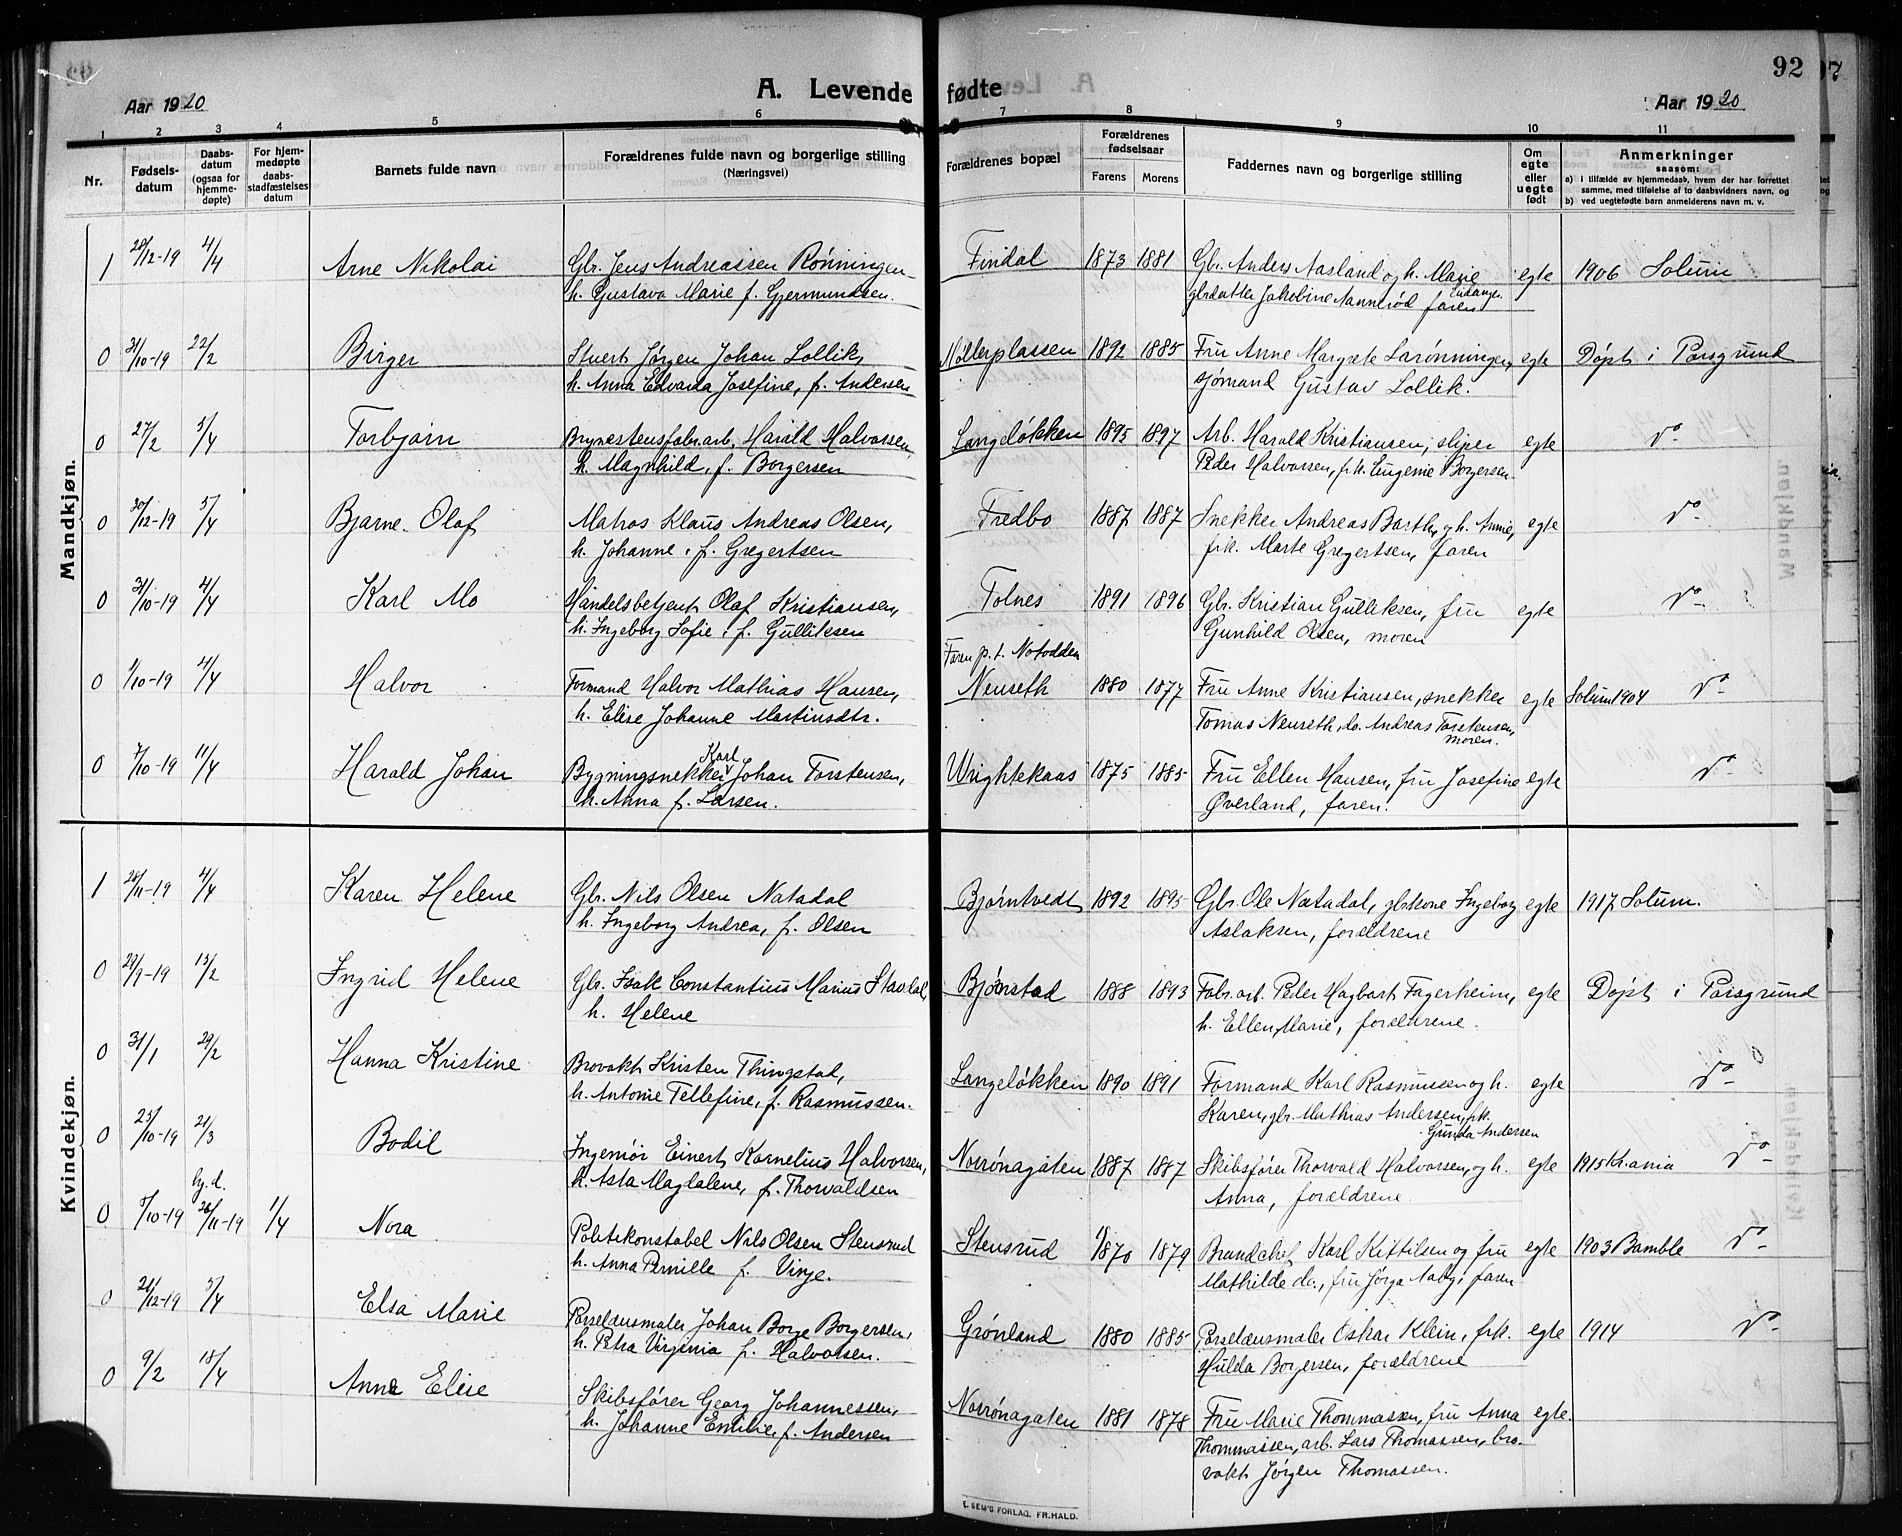 92
Aar 1920
A. Levende fødte
Aar 1920
1 2 3 4 5 6 7 8 9 10 11
Nr.
Fødsels-
datum
Daabs-
datum
(ogsaa for
hjemme-
døpte)
For hjem-
medøpte
daabs-
stadfæstelses
datum
Barnets fulde navn
Forældrenes fulde navn og borgerlige stilling
(Næringsvei)
Forældrenes bopæl
Forældrenes
fødselsaar
Farens. Morens.
Faddernes navn og borgerlige stilling
Om
egte
eller
uegte
født
Anmerkninger
saasom:
a) i tilfælde av hjemmedaab, hvem der har forrettet
samme, med tilføielse af to daabsvidners navn, og
b) ved uegtefødte barn anmelderens navn m. v.
Mandkjøn.
1 28/12-19 4/4 Arne Nikolai Gbr. Jens Andreassen Rønningen Findal 1873 1881 Gbr. Anders Aasland og h. Marie egte 1906 Solum
h. Gustava Marie f. Gjermundsen. gbrdatter Jakobine Nannerød faren
0 31/10-19 22/2 Birger Stuert Jørgen Johan Lollik, Møllerplassen 1892 1885 Fru Anne Margrete Larønningen, egte Døpt i Porsgrund
h. Anna Edvarda Josefine, f. Andersen sjømand Gustav Lollik.
0 27/2 5/4 Torbjørn Brynestensfabr.arb. Harald Halvorsen, Langeløkken 1895 1897 Arb. Harald Kristiansen, sliper egte do
h. Magnhild, f. Borgersen Peder Halvorsen, frk. Eugenie Borgersen
0 30/12-19 5/4 Bjarne Olaf Matros Klaus Andreas Olsen, Fredbo 1887 1887 Snekker Andreas Barth, og h. Annie, egte do
h. Johanne, f. Gregertsen frk. Marte Gregertsen, faren
0 31/10-19 4/4 Karl Mo Handelsbetjent Olaf Kristiansen, Tolnes 1891 1896 Gbr. Kristian Gulliksen, fru egte do
h. Ingeborg Sofie, f. Gulliksen Gunhild Olsen, moren
Faren p.t. Notodden
0 1/10-19 4/4 Halvor Formand Halvor Mathias Hansen, Nenseth 1880 1877 Fru Anne Kristiansen, snekker egte Solum 1904 do
h. Elise Johanne Martinsdtr. Tomas Nenseth, do. Andreas Torstensen,
moren.
Karl
0 7/10-19 11/4 Harald Johan Bygningsnekker Johan Torstensen, Wrightekaas 1875 1885 Fru Ellen Hansen, fru Josefine egte do
h. Anna f. Larsen. Øverland, faren.
Kvindekjøn.
1 28/11-19 4/4 Karen Helene Gbr. Nils Olsen Natadal Bjørntvedt 1892 1895 Gbr. Ole Natadal, gbrkone Ingeborg egte 1917 Solum.
h. Ingeborg Andrea, f. Olsen Aslaksen, forældrene
0 29/9-19 15/2 Ingrid Helene Gbr. Isak Constantius Marius Stavdal, Bjørnstad 1888 1893 Fabr.arb. Peder Hagbart Fagerheim, egte Døpt i Porsgrund
h. Helene h. Ellen Marie, forældrene.
0 31/1 29/2 Hanna Kristine Brovakt Kristen Thingstad, Langeløkken 1890 1891 Formand Karl Rasmussen og h. egte do
h. Antonie Tellefine, f. Rasmussen. Karen, gbr. Mathias Andersen, frk.
Gunda Andersen
0 25/10-19 21/3 Bodil Ingeniør Einert Kornelius Halvorsen, Norrønagaten 1887 1887 Skibsfører Thorvald Halvorsen, og h. egte 1915 Krania do
h. Asta Magdalene, f. Thorvaldsen Anna, forældrene.
hj. d.
0 5/10-19 26/11-19 1/4 Nora Politikonstabel Nils Olsen Stensrud Stensrud 1870 1879 Brandchef Karl Kittilsen og fru egte 1903 Bamble do
h. Anna Pernille f. Vinje. Mathilde do., fru Jørga Aaby, faren
0 21/12-19 5/4 Elsa Marie Porselænsmaler Johan Borge Borgersen, Grønland 1880 1885 Porselænsmaler Oskar Klein, frk. egte 1914 do
h. Petra Virginia f. Halvorsen. Hulda Borgersen, forældrene
0 9/2 18/4 Anna Elise Skibsfører Georg Johannessen, Norrønagaten 1881 1878 Fru Marie Thommassen, fru Anna egte.
h. Johanne Emilie, f. Andersen Thommassen, arb. Lars Thomassen, bro-
vakt Jørgen Thomassen.
E. SEM'S FORLAG. FR.HALD.